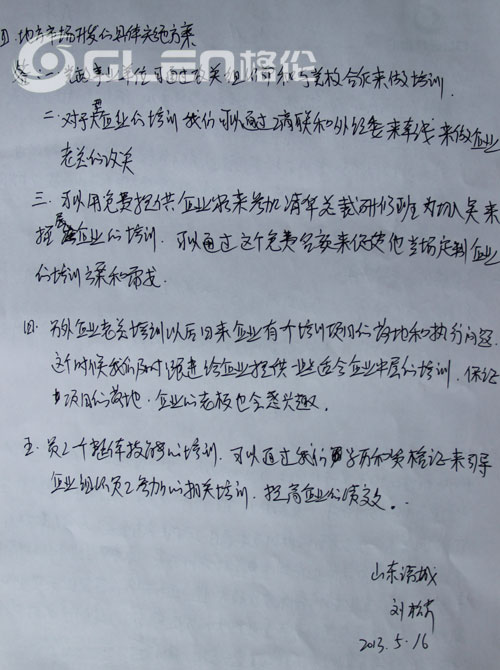 四、地方市场开发的具体实施方案
GLEN 格伦
答：一 党政事业单位可通过攻关组织部和与党校合作来做培训.
二、对于其企业的培训 我们可以通过工商联和外经委来牵线 来做企业
老总的攻关
三、可以用免费提供企业家来参加清华总裁研修班为切入点来
拓展企业的培训, 可以通过这个免费名额来促使他当场定制企业
的培训方案和需求.
四. 另外企业老总培训以后回来企业有个培训项目的落地和执行问题.
这个时候我们及时跟进给企业提供一些适合企业中层的培训, 保证
项目的落地. 企业的老板也会感兴趣.
五. 员工个整体技能的培训, 可以通过我们学历和资格证来引导
企业组织员工参加的相关培训, 提高企业的绩效.
山东诸城
刘
2013.5.16